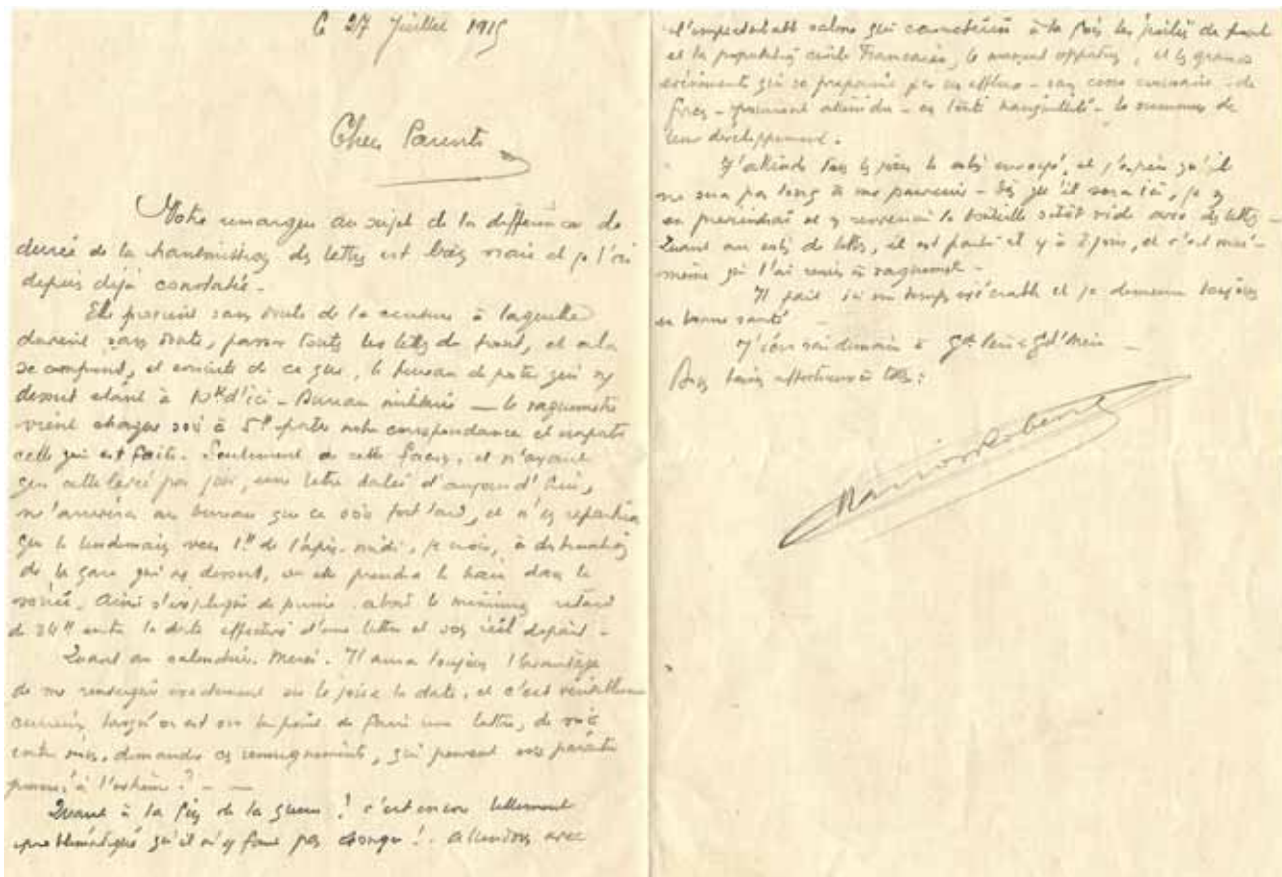 le 27 Juillet 1915
Chers Parents
Votre remarque au sujet de la différence de
durée de la transmission des lettres est bien vraie et je l'ai
depuis déjà constatée -
Elle provient sans doute de la censure à laquelle
doivent sans doute, passer toutes les lettres du front, et cela
se comprend, et ensuite de ce que, le bureau de postes qui ns
dessert étant à d'ici - Bureau militaire - le vaguemestre
vient chaque soir à 5h porter notre correspondance et emporte
celle qui est faite. Seulement de cette façon, et n'ayant
qu'une levée par jour, une lettre datée d'aujourd'hui,
n'arrivera au bureau que ce soir fort tard, et n'en repartira
que le lendemain vers 1h de l'après-midi, je crois, à destination
de la gare qui ns dessert, où elle prendra le train dans la
soirée. Ainsi s'explique de prime abord le minimum retard
de 24h entre la date effective d'une lettre et son réel départ -
Quant au calendrier. Merci. Il aura toujours l'avantage
de me renseigner exactement sur le jour la date, et c'est véritablement
curieux, lorsqu'on est sur le point de faire une lettre, de voir
entre nous, demander ces renseignements, qui peuvent vous paraître
à l'extrême ? - -
Quant à la fin de la guerre ! c'est encore tellement
problématique qu'il n'y faut pas songer ! - Attendons avec
qui caractérise à la fois les poilus du front
et la population civile Française, le moment opportun, et les grands
événements qui se préparent par un afflux - sans cesse - de
forces - atteindre - en toute tranquillité - le summum de
leur développement.
J'attends tous les jours le colis envoyé, et j'espère qu'il
ne sera pas long à me parvenir - Dès qu'il sera ici, je
et renverrai la bouteille sitôt vide avec des lettres -
Quant au colis de lettres, il est parti il y a 2 jours, et c'est moi-
même qui l'ai remis au vaguemestre -
Il fait ici un temps exécrable et je demeure toujours
en bonne santé -
J'écrirai demain à
Bons baisers affectueux à tous :